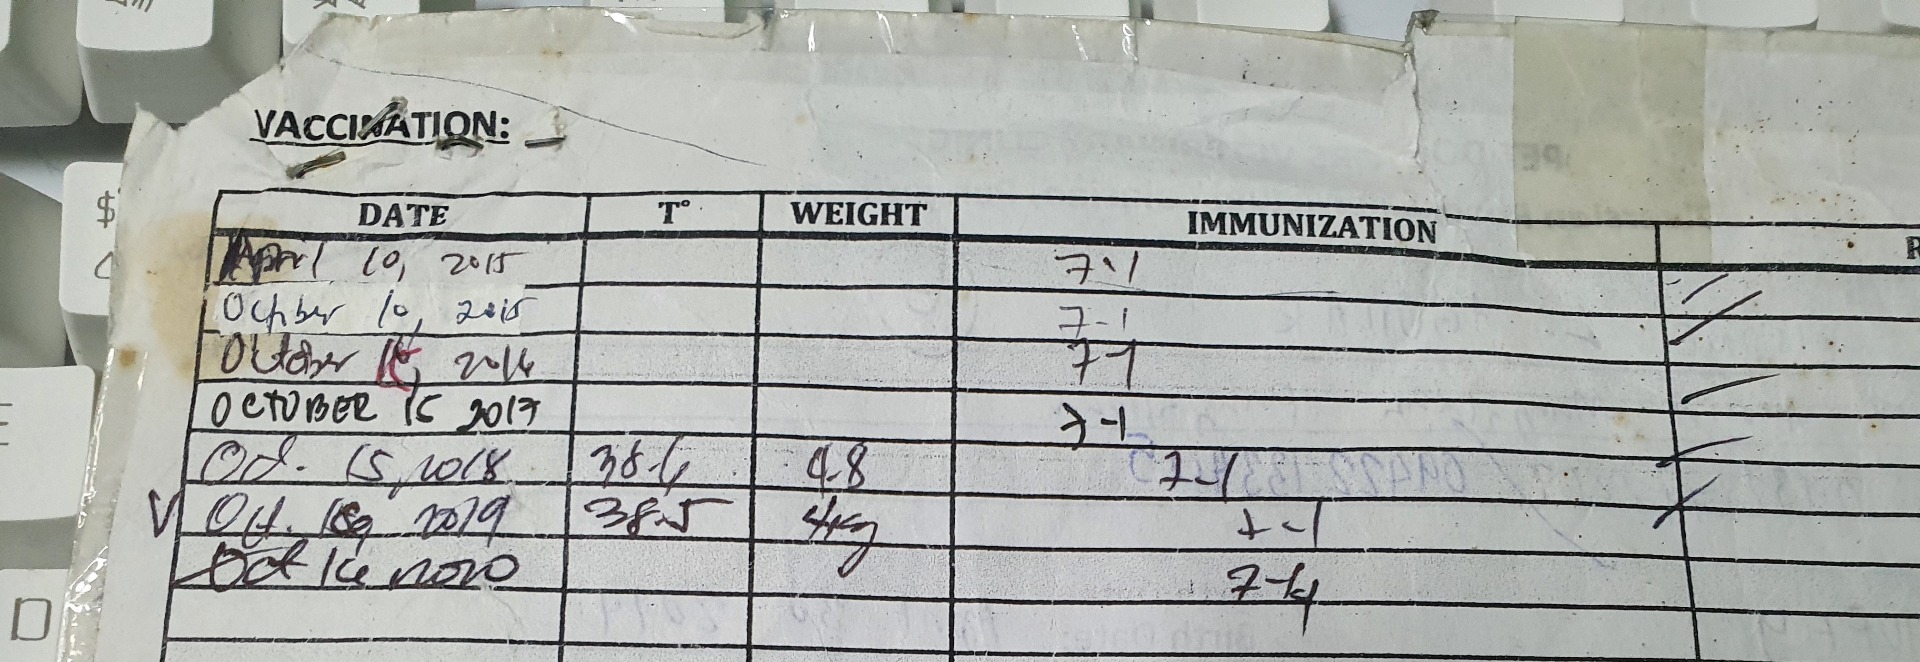 VACCINATION:
DATE T° WEIGHT IMMUNIZATION R
April 10, 2015 7-1
October 10, 2015 7-1
October 15, 2016 7-1
OCTOBER 15 2017 7-1
Oct. 15, 2018 38.6 4.8 7-1
Oct. 2019 38.5 4kg 7-1
Oct 2020
$
D